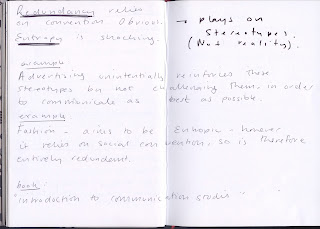 Redundancy relies
on convention. Obvious.
Entropy is shocking.
→ plays on
stereotypes.
(Not reality).
example
Advertising unintentially reinforces these
stereotypes by not challenging them, in order
to communicate as best as possible.
example
Fashion - aims to be Entropic - however
it relies on social convention, so is therefore
entirely redundant.
book:
'introdoction to communication studies'